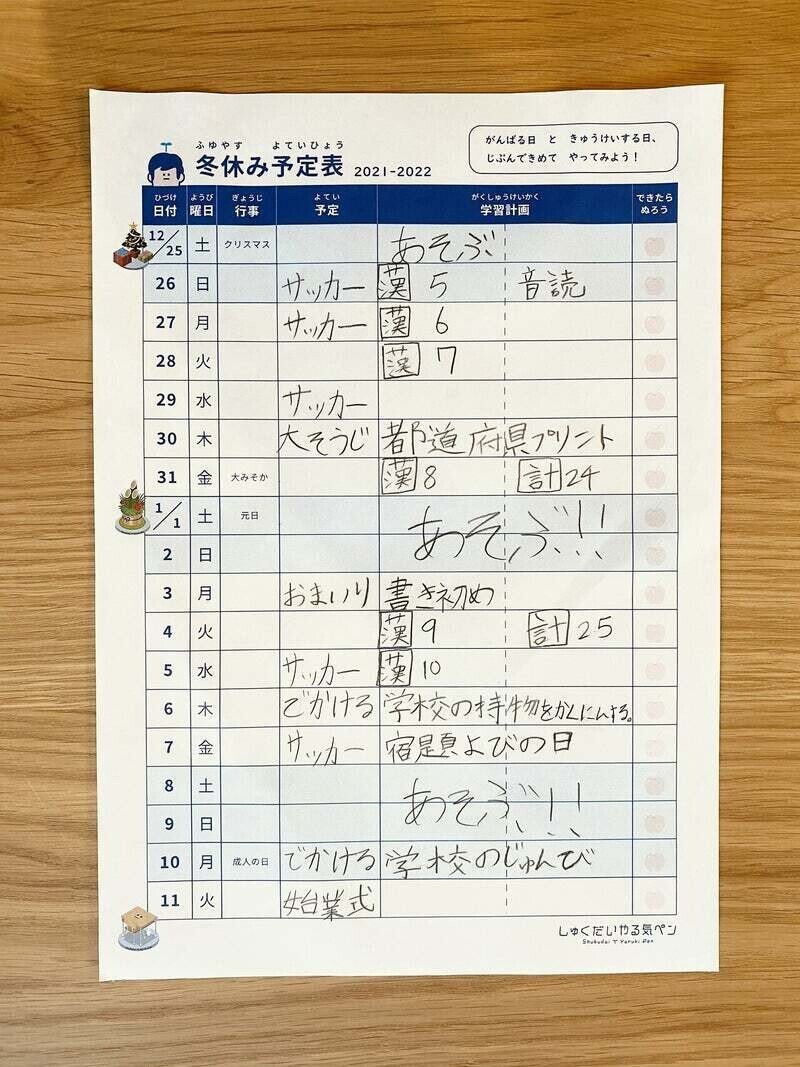 ふゆやす よていひょう
冬休み予定表 2021-2022
がんばる日 と きゅうけいする日、
じぶんできめて やってみよう！
ひづけ ようび ぎょうじ よてい がくしゅうけいかく できたら
日付 曜日 行事 予定 学習計画 ぬろう
12/25 土 クリスマス あそぶ
26 日 サッカー 漢 5 音読
27 月 サッカー 漢 6
28 火 漢 7
29 水 サッカー
30 木 大そうじ 都道府県プリント
31 金 大みそか 漢 8 計 24
1/1 土 元日 あそぶ!!
2 日
3 月 おまいり 書き初め
4 火 漢 9 計 25
5 水 サッカー 漢 10
6 木 でかける 学校の持物をかくにんする。
7 金 サッカー 宿題よびの日
8 土 あそぶ!!
9 日
10 月 成人の日 でかける 学校のじゅんび
11 火 始業式
しゅくだいやる気ペン
Shukudai Yaruki Pen